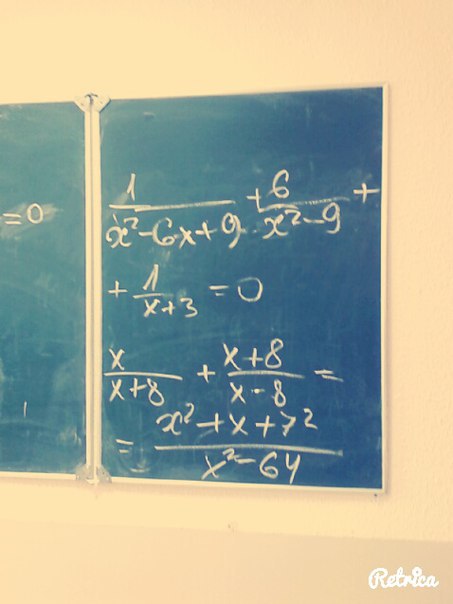 =0
1/(x²-6x+9) + 6/(x²-9) +
+ 1/(x+3) = 0
x/(x+8) + (x+8)/(x-8) =
= (x²+x+72)/(x²-64)
Retrica